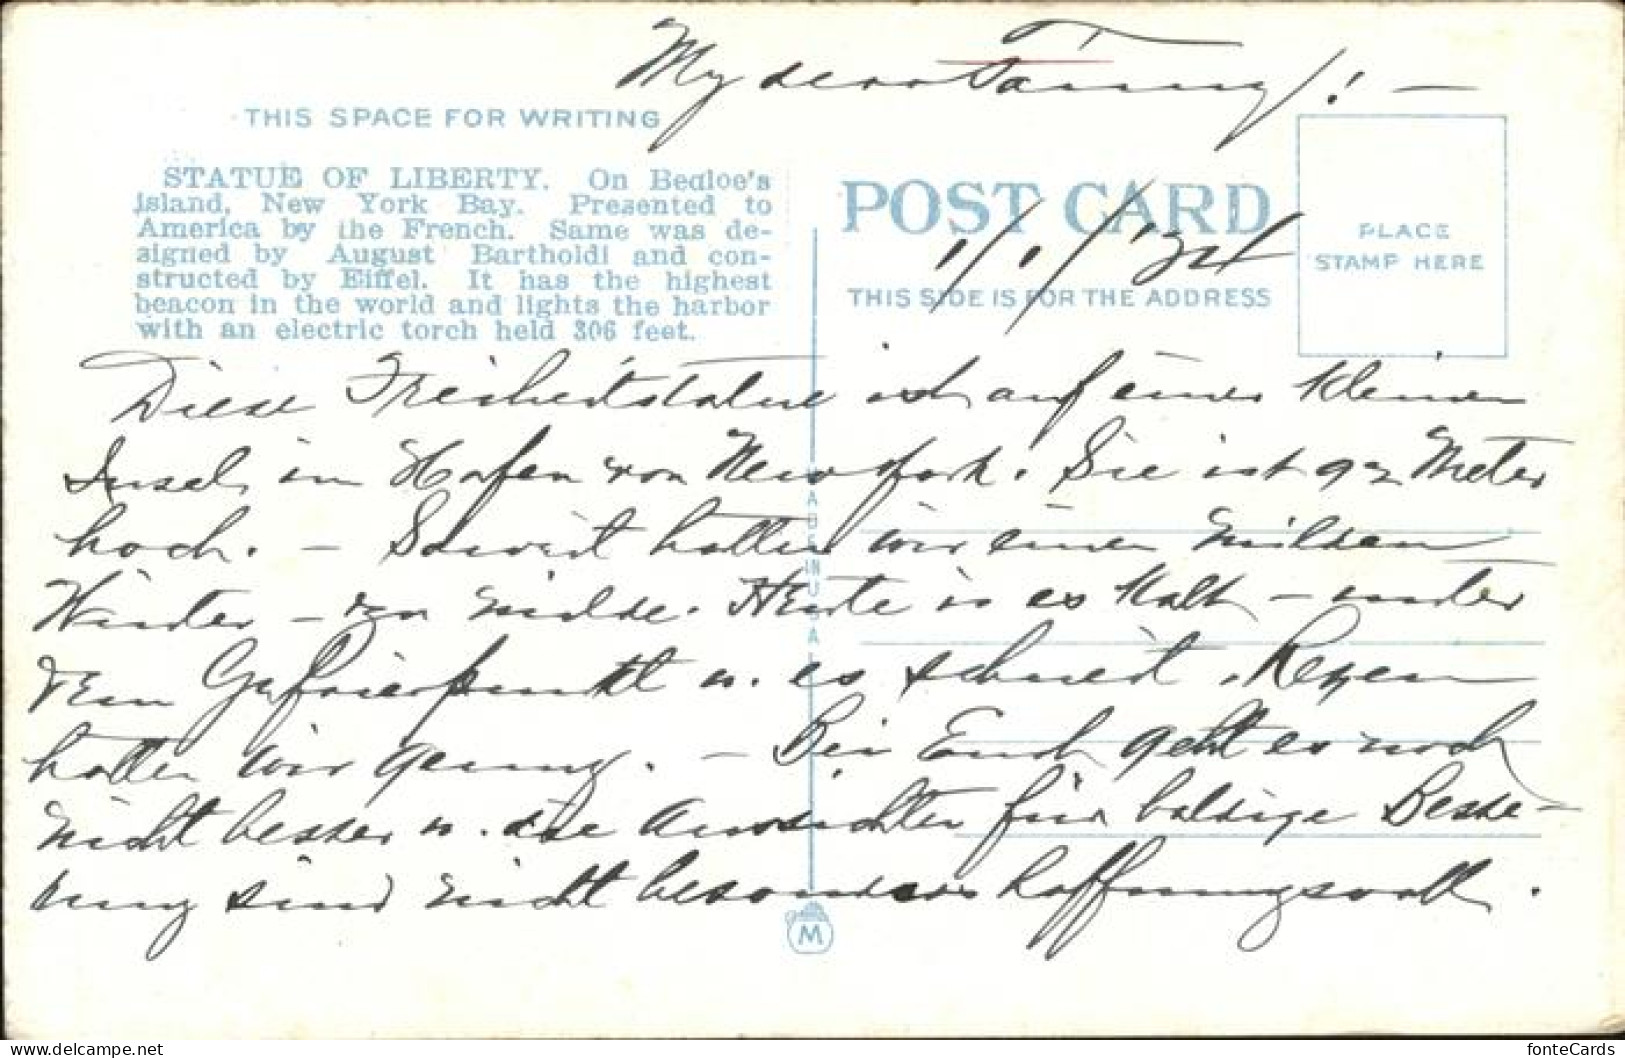 My dear Fanny! —
THIS SPACE FOR WRITING
STATUE OF LIBERTY. On Bedloe's
Island, New York Bay. Presented to
America by the French. Same was de-
signed by August Bartholdi and con-
structed by Eiffel. It has the highest
beacon in the world and lights the harbor
with an electric torch held 306 feet.
POST CARD
1/1/'34
THIS SIDE IS FOR THE ADDRESS
PLACE
STAMP HERE
Diese Freiheitstatue ist auf einer kleinen
Insel, im Hafen von New York. Sie ist 92 Meter
hoch. — Soweit hatten wir einen milden
Winter — zu milde. Heute is es kalt — unter
dem Gefrierpunkt u. es schneit. Regen
hatten wir genug. — Bei Euch geht es noch
nicht besser u. die Aussichten für baldige Besse-
rung sind nicht besonders hoffnungsvoll.
MADE IN U.S.A.
M
fonteCards